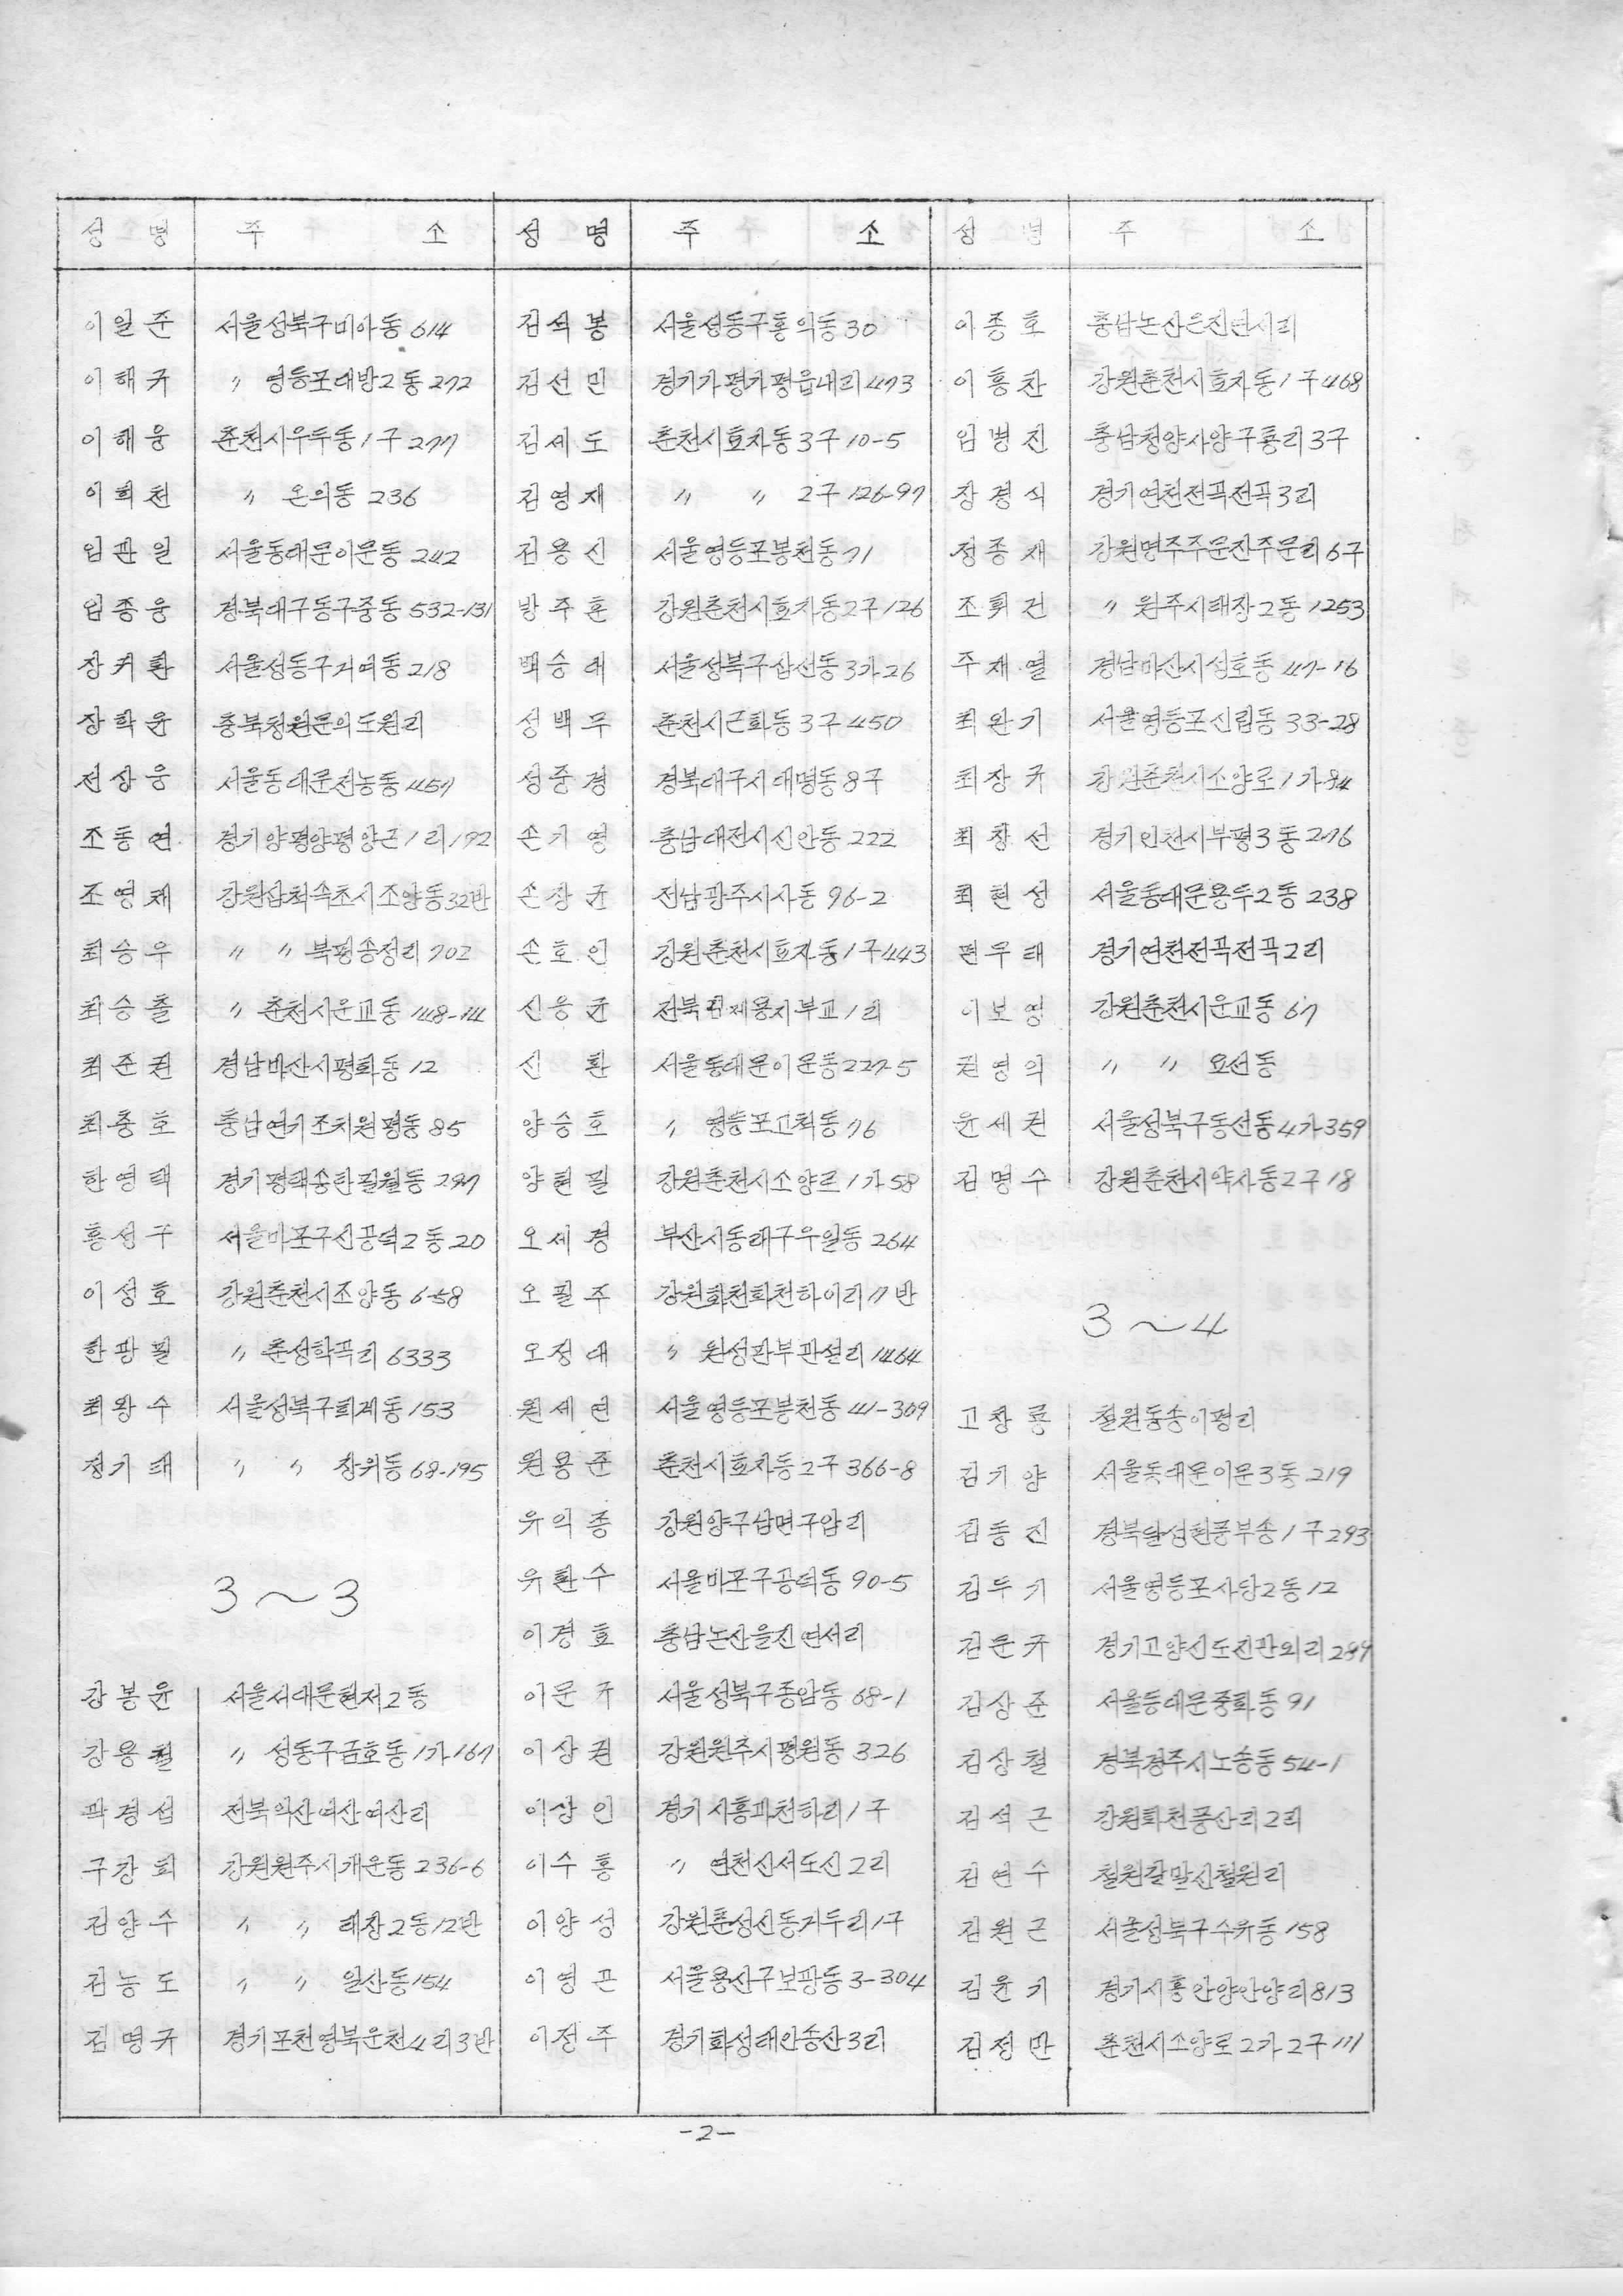 성 명 주 소
이일준 서울성북구미아동614
이해규 〃 영등포대방2동272
이해웅 춘천시우두동1구277
이희천 〃 온의동 236
임관일 서울동대문이문동242
임종웅 경북대구동구중동532-131
장기환 서울성동구거여동218
장학윤 충북청원문의도원리
전상웅 서울동대문전농동457
조동연 경기양평양평양근1리192
조영재 강원삼척속초시조양동32반
최승우 〃 〃 북평송정리702
최승출 〃 춘천시운교동148-14
최준권 경남마산시평화동12
최충호 충남연기조치원평동85
한영택 경기평택송탄필월동297
홍성구 서울마포구신공덕2동20
이성호 강원춘천시조양동6-58
한광필 〃 춘성학곡리6333
최왕수 서울성북구회계동153
정기태 〃 〃 창위동68-195
3~3
강봉윤 서울서대문현저2동
강용철 〃 성동구금호동1가167
곽경섭 전북익산여산여산리
구강회 강원원주시개운동236-6
김양수 〃 〃 태장2동12반
김농도 〃 〃 일산동154
김명규 경기포천영북운천4리3반
성 명 주 소
김석봉 서울성동구홍익동30
김선민 경기가평가평읍내리473
김세도 춘천시효자동3구10-5
김영재 〃 〃 2구126-97
김용신 서울영등포봉천동71
방주훈 강원춘천시효자동2구126
백승태 서울성북구삼선동3가26
성백무 춘천시근화동3구450
성중경 경북대구시대명동8구
손기영 충남대전시신안동222
손장균 전남광주시사동96-2
손호인 강원춘천시효자동1구443
신응균 전북김제용지부교1리
신 환 서울동대문이문동227-5
양승호 〃 영등포고척동76
양현필 강원춘천시소양로1가58
오세경 부산시동래구우일동264
오필주 강원화천화천하이리11반
오정대 〃 원성판부관설리1464
원세연 서울영등포봉천동41-309
원용준 춘천시효자동2구366-8
유익종 강원양구남면구암리
유환수 서울마포구공덕동90-5
이경효 충남논산을진연서리
이문구 서울성북구종암동68-1
이상권 강원원주시평원동326
이상인 경기시흥과천하리1구
이수홍 〃 연천신서도신2리
이양성 강원춘성신동거두리1구
이영곤 서울용산구보광동3-304
이정주 경기화성태안송산3리
성 명 주 소
이종호 충남논산은진연서리
이흥찬 강원춘천시효자동1구468
임병진 충남청양사양구룡리3구
장경식 경기연천전곡전곡3리
정종재 강원명주주문진주문리6구
조휘건 〃 원주시태장2동1253
주재열 경남마산시성호동47-16
최완기 서울영등포신림동33-28
최장규 강원춘천시소양로1가84
최창선 경기인천시부평3동276
최현성 서울동대문용두2동238
편무태 경기연천전곡전곡2리
이보영 강원춘천시운교동67
권영의 〃 〃 요선동
윤세권 서울성북구동선동4가359
김명수 강원춘천시약사동2구18
3~4
고창룡 철원동송이평리
김기양 서울동대문이문3동219
김동진 경북달성현풍부송1구293
김두기 서울영등포사당2동12
김문규 경기고양신도진관외리289
김상준 서울동대문중화동91
김상철 경북경주시노승동54-1
김석근 강원화천풍산리2리
김연수 철원갈말신철원리
김원근 서울성북구수유동158
김윤기 경기시흥안양안양리813
김정만 춘천시소양로2가2구111
-2-